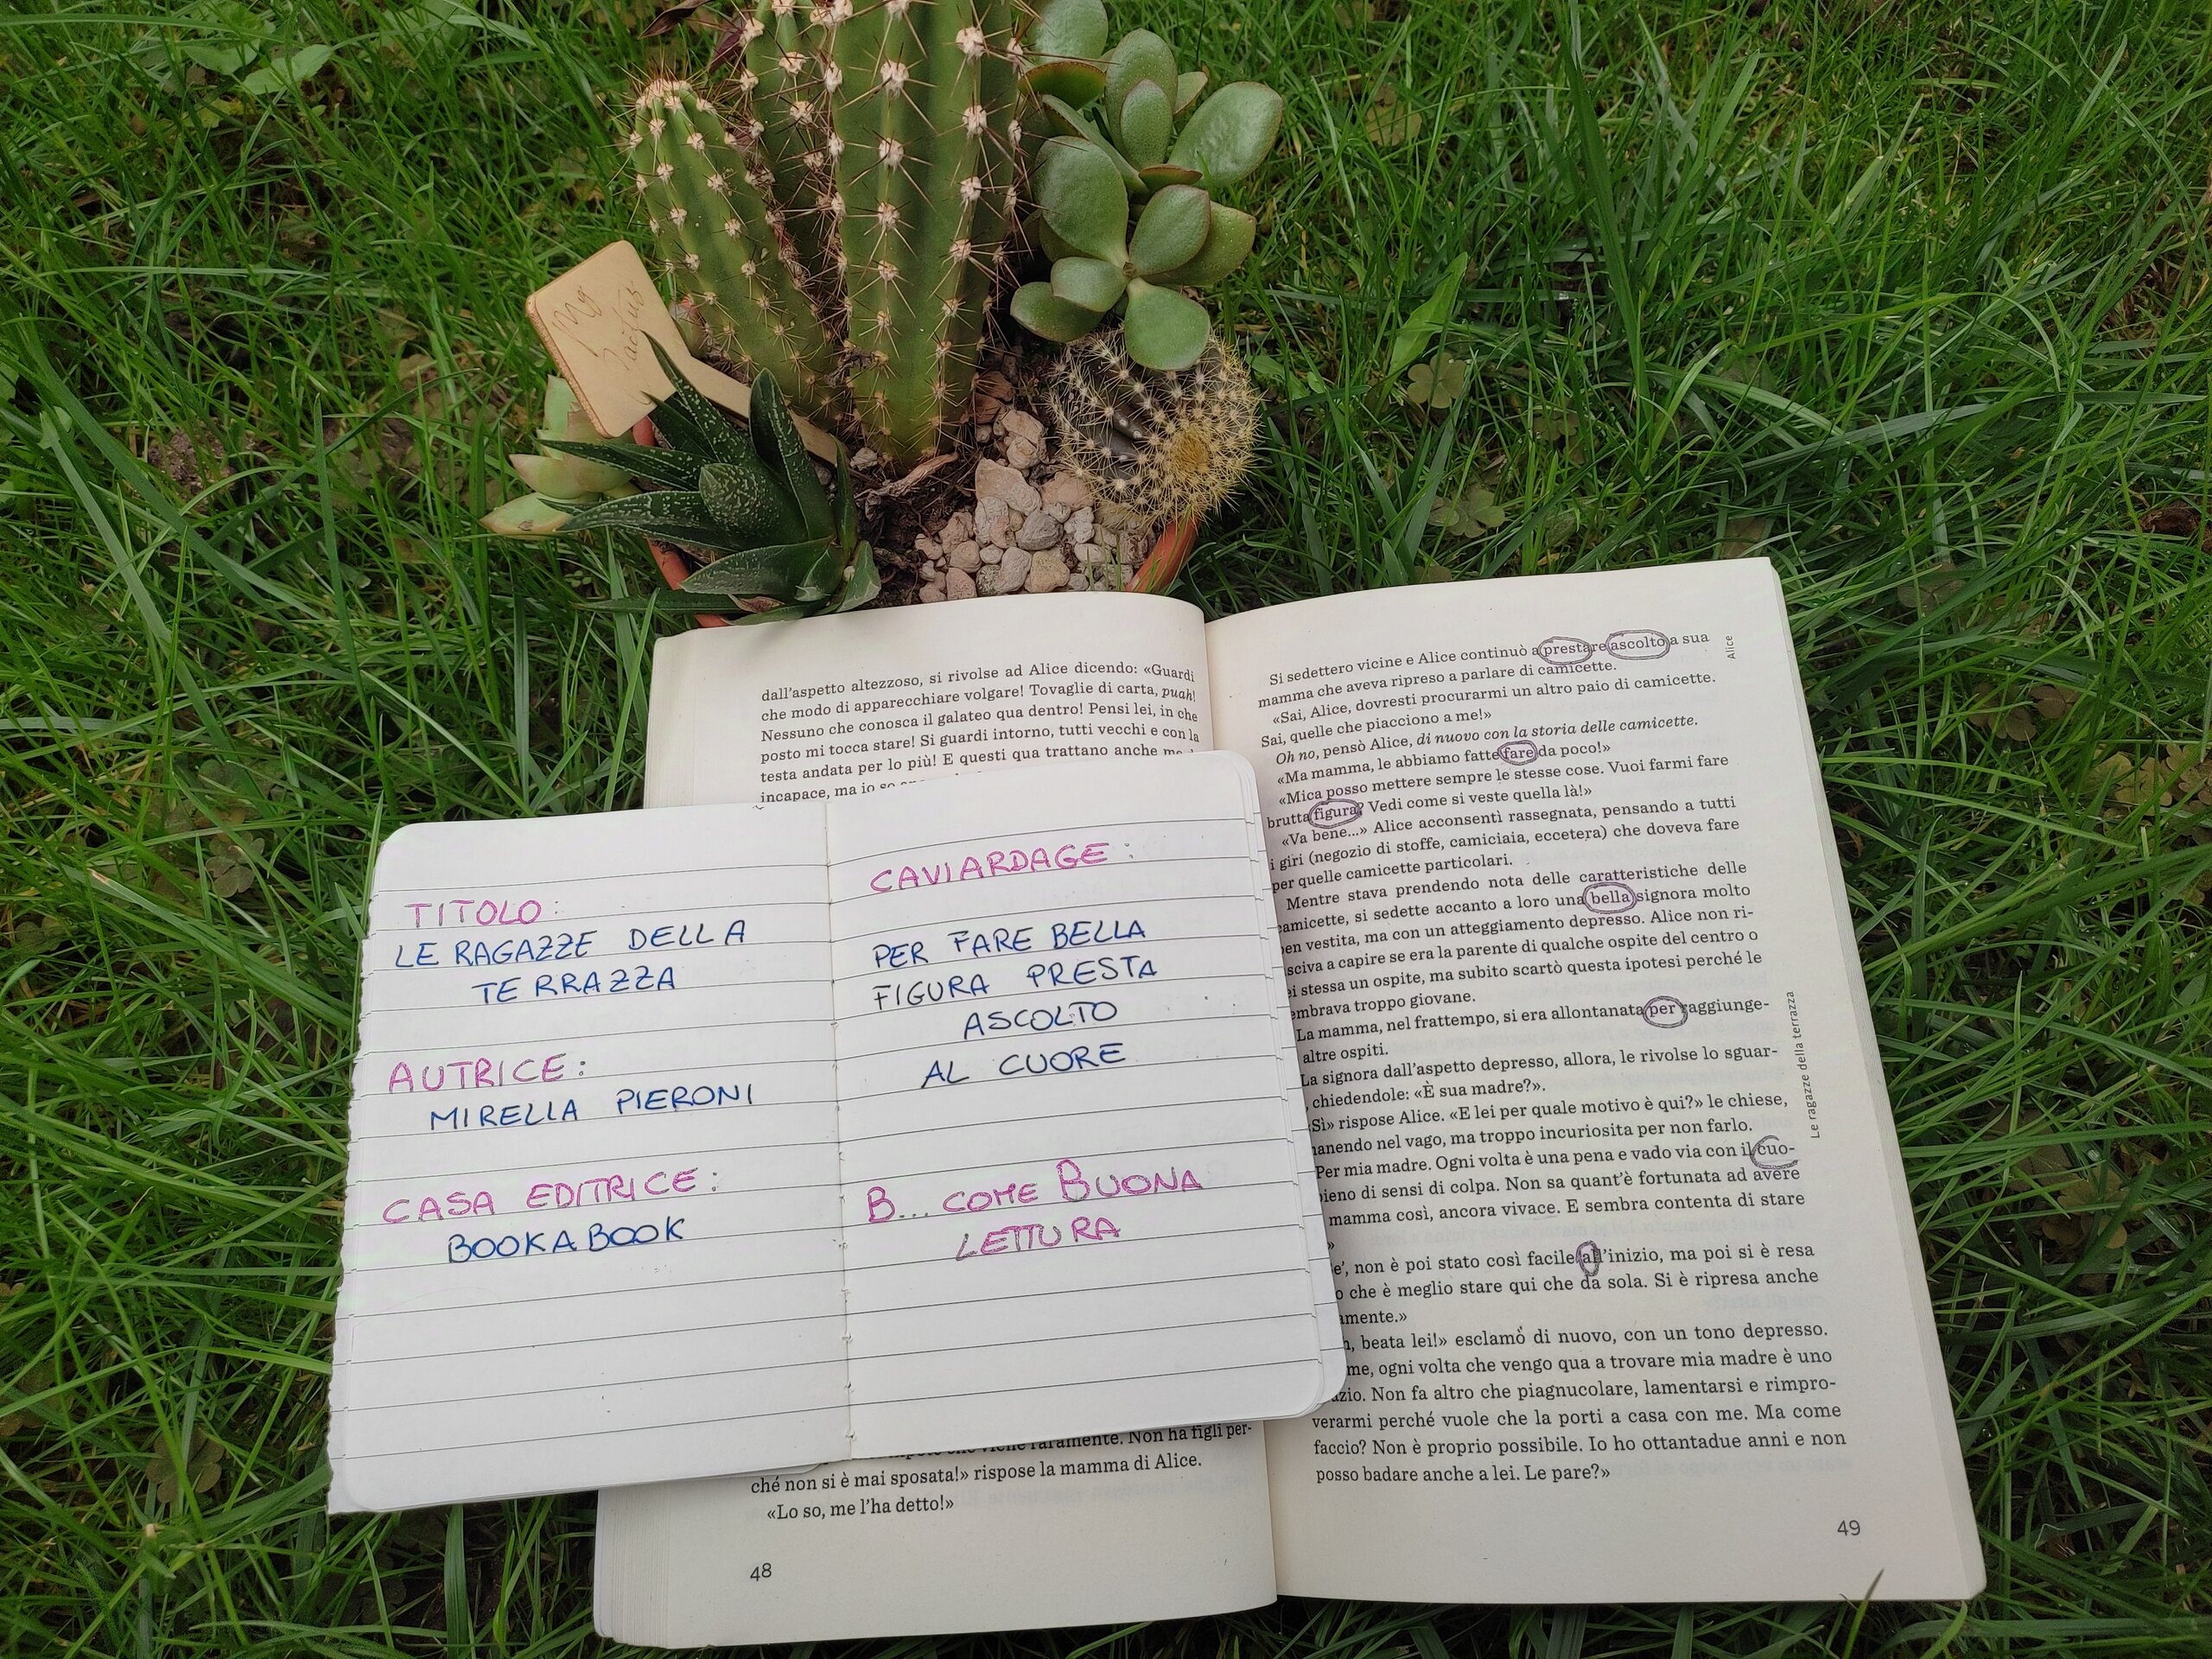 My
Cactus
dall'aspetto altezzoso, si rivolse ad Alice dicendo: «Guardi
che modo di apparecchiare volgare! Tovaglie di carta, puah!
Nessuno che conosca il galateo qua dentro! Pensi lei, in che
posto mi tocca stare! Si guardi intorno, tutti vecchi e con la
testa andata per lo più! E questi qua trattano anche
incapace, ma io so
TITOLO:
LE RAGAZZE DELLA
TERRAZZA
AUTRICE:
MIRELLA PIERONI
CASA EDITRICE:
BOOKABOOK
CAVIARDAGE:
PER FARE BELLA
FIGURA PRESTA
ASCOLTO
AL CUORE
B... COME BUONA
LETTURA
che viene raramente. Non ha figli per-
ché non si è mai sposata!» rispose la mamma di Alice.
«Lo so, me l'ha detto!»
48
Si sedettero vicine e Alice continuò a prestare ascolto a sua
mamma che aveva ripreso a parlare di camicette.
«Sai, Alice, dovresti procurarmi un altro paio di camicette.
Sai, quelle che piacciono a me!»
Oh no, pensò Alice, di nuovo con la storia delle camicette.
«Ma mamma, le abbiamo fatte fare da poco!»
«Mica posso mettere sempre le stesse cose. Vuoi farmi fare
brutta figura? Vedi come si veste quella là!»
«Va bene...» Alice acconsentì rassegnata, pensando a tutti
i giri (negozio di stoffe, camiciaia, eccetera) che doveva fare
per quelle camicette particolari.
Mentre stava prendendo nota delle caratteristiche delle
camicette, si sedette accanto a loro una bella signora molto
ben vestita, ma con un atteggiamento depresso. Alice non ri-
sciva a capire se era la parente di qualche ospite del centro o
ei stessa un ospite, ma subito scartò questa ipotesi perché le
embrava troppo giovane.
La mamma, nel frattempo, si era allontanata per raggiunge-
altre ospiti.
La signora dall'aspetto depresso, allora, le rivolse lo sguar-
, chiedendole: «È sua madre?».
Sì» rispose Alice. «E lei per quale motivo è qui?» le chiese,
anendo nel vago, ma troppo incuriosita per non farlo.
Per mia madre. Ogni volta è una pena e vado via con il cuo-
pieno di sensi di colpa. Non sa quant'è fortunata ad avere
mamma così, ancora vivace. E sembra contenta di stare
»
e', non è poi stato così facile all'inizio, ma poi si è resa
o che è meglio stare qui che da sola. Si è ripresa anche
amente.»
h, beata lei!» esclamò di nuovo, con un tono depresso.
me, ogni volta che vengo qua a trovare mia madre è uno
azio. Non fa altro che piagnucolare, lamentarsi e rimpro-
verarmi perché vuole che la porti a casa con me. Ma come
faccio? Non è proprio possibile. Io ho ottantadue anni e non
posso badare anche a lei. Le pare?»
49
Alice
Le ragazze della terrazza